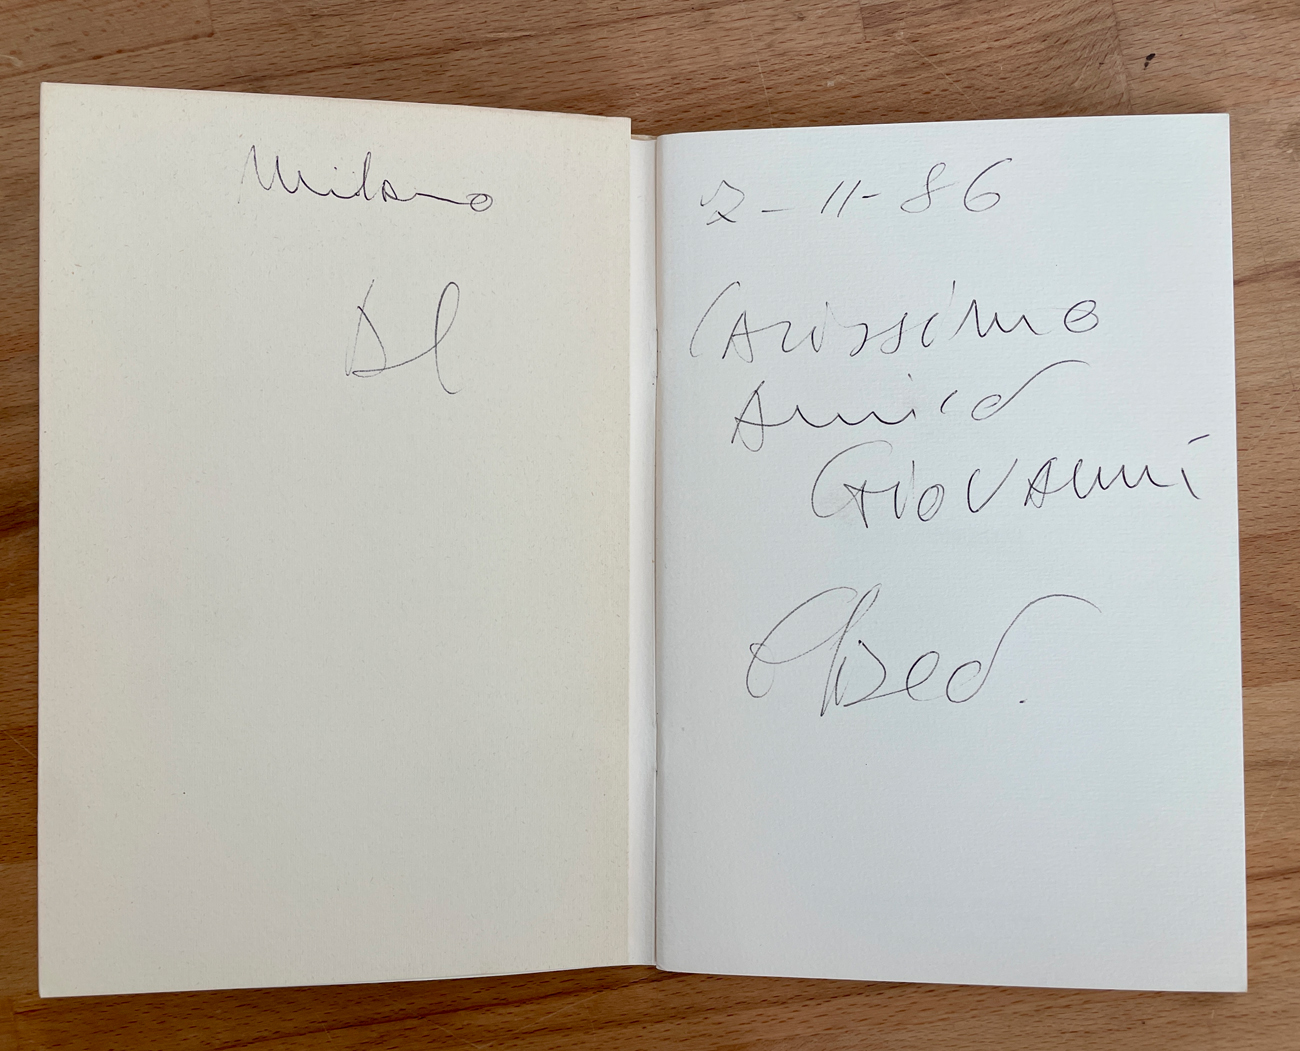 Milano
Al
2-11-86
Carissimo
Amico
Giovanni